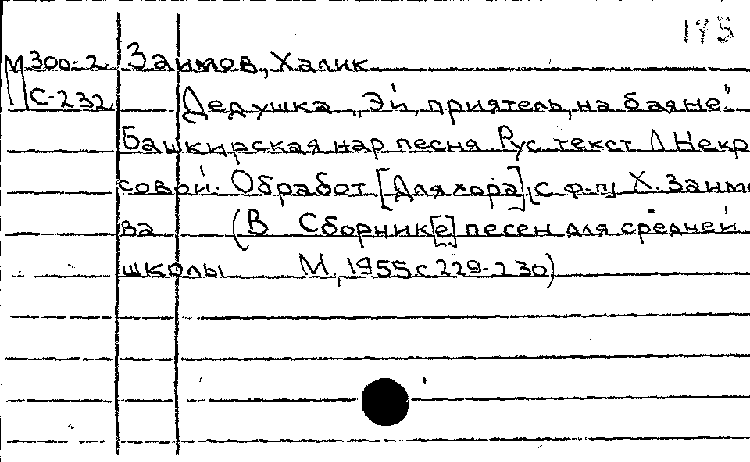 195
М 300-2 Заимов, Халик
С-232 Дедушка „Эй, приятель, на баяне"
Башкирская нар песня Рус текст Л Некра
совой. Обработ [для хора] с ф-п Х. Заимо
ва (В Сборник[е] песен для средней
школы М, 1955 с 229-230)